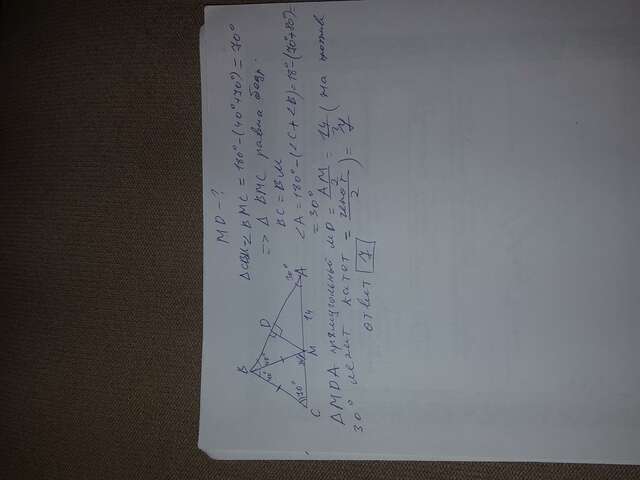 MD - ?
ΔCBM ∠BMC = 180° - (40° + 70°) = 70°
=> Δ BMC равна бедр.
BC = BM
∠A = 180° - (∠C + ∠B) = 18° - (70° + 80°) -
= 30°
B
40°
40°
D
30°
A
70°
C
M
14
ΔMDA прямоугольный MD = AM/2 = 14/2 ( на против
30° лежит катет = гипот/2 ) = 7
ответ 7